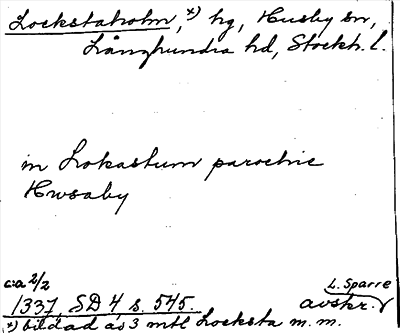 Lockstaholm, *) hg, Husby sn,
Långhundra hd, Stockh. l.
in Lokastum parochie
Hwsaby
c:a 2/2
1337, SD 4, s. 545.
L. Sparre
avskr.
*) bildad av 3 mtl Locksta m. m.